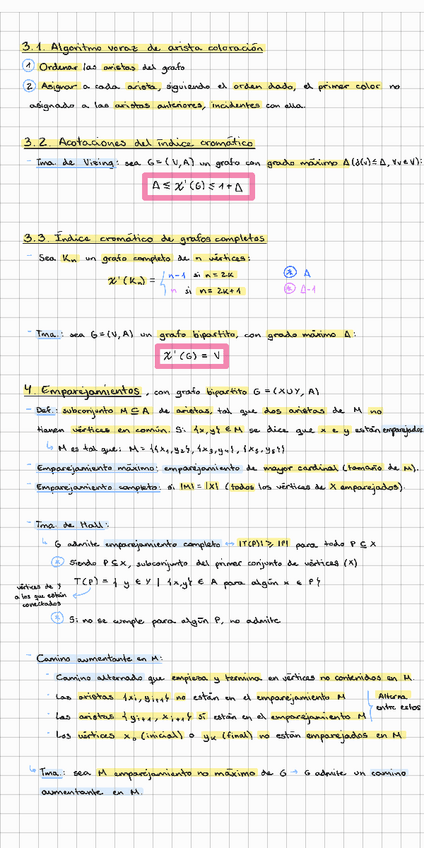 3.1. Algoritmo voraz de arista coloración
① Ordenar las aristas del grafo
② Asignar a cada arista, siguiendo el orden dado, el primer color no
asignado a las aristas anteriores, incidentes con ella.
3.2. Acotaciones del índice cromático
- Tma. de Vizing: sea G=(V,A) un grafo con grado máximo Δ (δ(v)≤Δ, ∀v∈V):
Δ ≤ χ'(G) ≤ 1+Δ
3.3. Índice cromático de grafos completos
- Sea Kn un grafo completo de n vértices:
χ'(Kn) = { n-1 si n=2k ⊛ Δ
n si n=2k+1 ⊛ Δ-1
- Tma.: sea G=(V,A) un grafo bipartito, con grado máximo Δ:
χ'(G) = V
4. Emparejamientos, con grafo bipartito G=(X∪Y, A)
- Def: subconjunto M⊆A de aristas, tal que dos aristas de M no
tienen vértices en común. Si {x,y} ∈ M se dice que x e y están emparejados
↳ M es tal que: M={{x1,y2}, {x3,y4}, {x5,y5}}
- Emparejamiento máximo: emparejamiento de mayor cardinal (tamaño de M).
- Emparejamiento completo: si |M|=|X| (todos los vértices de X emparejados).
- Tma de Hall:
↳ G admite emparejamiento completo ↔ |T(P)| ≥ |P| para todo P⊆X
⊛ Siendo P⊆X, subconjunto del primer conjunto de vértices (X)
T(P) = { y ∈ Y | {x,y} ∈ A para algún x ∈ P}
vértices de Y
a los que están
conectados
⊛ Si no se cumple para algún P, no admite
- Camino aumentante en M:
- Camino alternado que empieza y termina en vértices no contenidos en M.
- Las aristas {xi, yi+1} no están en el emparejamiento M
- Las aristas {yi+1, xi+1} sí están en el emparejamiento M
Alterna
entre estos
- Los vértices x0 (inicial) o yk (final) no están emparejados en M
↳ Tma.: sea M emparejamiento no máximo de G → G admite un camino
aumentante en M